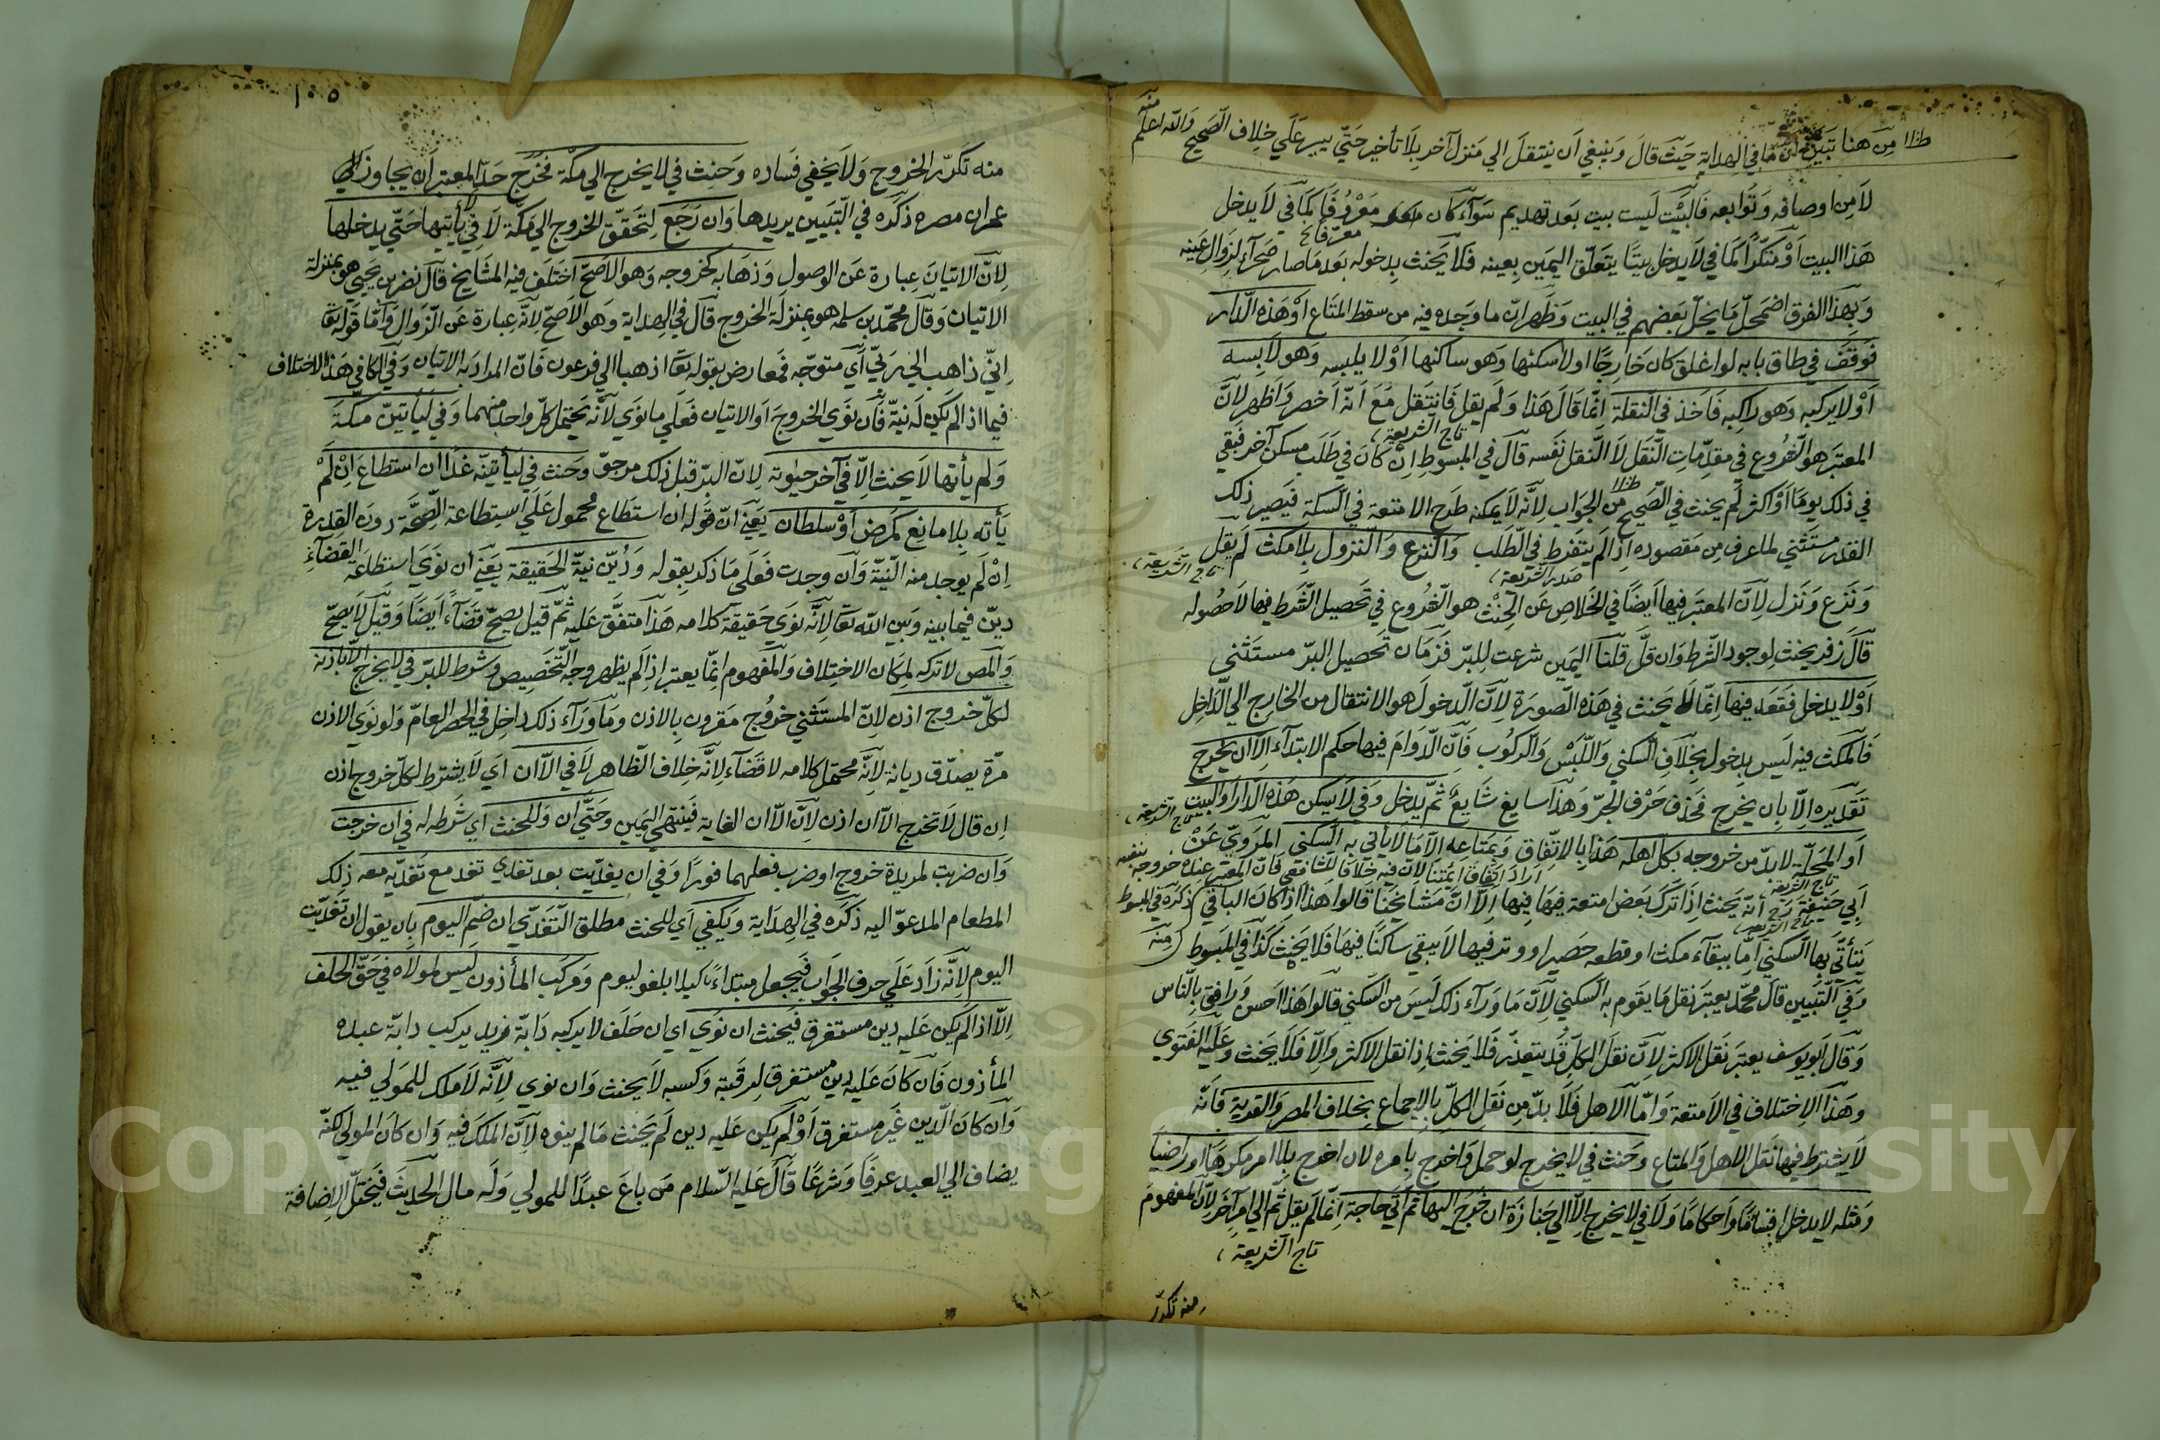 من هنا تبين ان ما في الهداية حيث قال وينبغي ان ينتقل الي منزل آخر بلا تأخير حتي يبر علي خلاف الصحيح والله اعلم
منه
لا من اوصافه وتوابعه فالبيت ليست بيت بعد تهديم سوآء كان معرفا كما في لا يدخل
هذا البيت او منكرا كما في لا يدخل بيتا يتعلق اليمين بعينه فلا يحنث بدخوله بعد ما صار صحرآء لزوال عينه
وبهذا الفرق اضمحل ما يخل بعضهم في البيت وظهر ان ما وجده فيه من سقط المتاع او هذه الدار
فوقف في طاق بابه لو اغلق كان خارجا او لا سكنها وهو ساكنها او لا يلبسه وهو لابسه
او لا يركبه وهو راكبه فاخذ في النقلة انما قال هذا ولم يقل فانتقل مع انه اخصر واظهر لان
تاج الشريعة
المعتبر هو الشروع في مقدمات النقل لا النقل نفسه قال في المبسوط ان كان في طلب مسكن آخر فبقي
في ذلك يوما او اكثر لم يحنث في الصحيح من الجواب لانه لا يمكنه طرح الامتعة في السكة فيصير ذلك
القدر مستثني لما عرف من مقصوده اذا لم يتفرط في الطلب والنزع والنزول بلا مكث لم يقل
صدر الشريعة
تاج الشريعة
ونزع ونزل لان المعتبر فيها ايضا في الخلاص عن الحنث هو الشروع في تحصيل الشرط فيها لا حصوله
قال زفر يحنث لوجود الشرط وان قل قلنا اليمين شرعت للبر فزمان تحصيل البر مستثني
او لا يدخل فقعد فيها انما لا يحنث في هذه الصورة لان الدخول هو الانتقال من الخارج الي الداخل
فالمكث فيه ليس بدخول بخلاف السكني واللبس والركوب فان الدوام فيها حكم الابتدآء الا ان يخرج
تقديره الا بان يخرج فحذف حرف الجر وهذا سايغ شايع ثم يدخل وفي لا يسكن هذه الدار او البيت
تاج الشريعة
او المحلة لا بد من خروجه بكل اهله هذا بالاتفاق وبمتاعه الا ما لا يأتي به السكني المروي عن
اراد اتفاق ائمتنا لان فيه خلافا للشافعي فان المعتبر عنده خروجه بنفسه
تاج الشريعة
ابي حنيفة رح انه يحنث اذا ترك بعض امتعة فيها الا ان مشايخنا قالوا هذا اذا كان الباقي ذكره في المبسوط
منه
يتأتي بها السكني اما ببقآء مكث او قطعه حصير او وتد فيها لا يبقي ساكنا فيها فلا يحنث كذا في المبسوط
وفي التبيين قال محمد يعتبر نقل ما يقوم به السكني لان ما ورآء ذلك ليس من السكني قالوا هذا احسن وارفق بالناس
وقال ابو يوسف يعتبر نقل الاكثر لان نقل الكل قد يتعذر فلا يحنث اذا نقل الاكثر والا فلا يحنث وعليه الفتوي
وهذا الاختلاف في الامتعة واما الاهل فلا بد من نقل الكل بالاجماع بخلاف المصر والقرية فانه
لا يشترط فيها نقل الاهل والمتاع وحنث في لا يخرج لو حمل واخرج بامره لا ان اخرج بلا امر مكرها او راضيا
ومثله لا يدخل اقساما واحكاما ولا في لا يخرج الا الي جنازة ان خرج اليها ثم اتي حاجة انما لم يقل ثم الي امر آخر لان المفهوم
تاج الشريعة
منه تكرر
١٠٥
منه تكرر الخروج ولا يخفي فساده وحنث في لا يخرج الي مكة فخرج حد المعتبر ان يجاوز
عمران مصره ذكره في التبيين يريدها وان رجع لتحقق الخروج الي مكة لا في لا يأتيها حتي يدخلها
لان الاتيان عبارة عن الوصول وذهابه كخروجه وهو الاصح اختلف فيه المشايخ قال نضر بن يحيي هو بمنزلة
الاتيان وقال محمد بن سلمه هو بمنزلة الخروج قال في الهداية وهو الاصح لانه عبارة عن الزوال واما قوله تعا
اني ذاهب الي ربي اي متوجه فمعارض بقوله تعا اذهبا الي فرعون فان المراد به الاتيان وفي الكافي هذا الاختلاف
فيما اذا لم يكن له نية فان نوي الخروج او الاتيان فعلي ما نوي لانه يحتمل كل واحد منهما وفي ليأتين مكة
ولم يأتها لا يحنث الا في آخر حيوته لان البر قبل ذلك مرجو وحنث في ليأتينه غدا ان استطاع ان لم
يأته بلا مانع كمرض او سلطان يعني ان قوله ان استطاع محمول علي استطاعة الصحة دون القدرة
ان لم يوجد منه النية وان وجدت فعلي ما ذكر بقوله ودين نية الحقيقة يعني ان نوي استطاعة القضآء
دين فيما بينه وبين الله تعا لانه نوي حقيقة كلامه هذا متفق عليه ثم قيل يصح قضآء ايضا وقيل لا يصح
والمص لا تركه لمكان الاختلاف والمفهوم انما يعتبر اذا لم يظهر وجه التخصيص وشرط للبر في لا يخرج الا باذنه
لكل خروج اذن لان المستثني خروج مقرون بالاذن وما ورآء ذلك داخل في الحظر العام ولو نوي الاذن
مرة يصدق ديانة لانه محتمل كلامه لا قضآء لانه خلاف الظاهر لا في الا ان اي لا يشترط لكل خروج اذن
ان قال لا تخرج الا ان اذن لان الا ان الغاية فينتهي اليمين وحتي ان وللحنث اي شرطه له في ان خرجت
وان ضربت لمريدة خروج او ضرب فعلهما فورا وفي ان يغديت بعد تعدي تغد مع تغديه معه ذلك
المطعام المدعو اليه ذكره في الهداية ويكفي اي للحنث مطلق التغدي ان ضم اليوم بان يقول ان تغديت
اليوم لانه زاد علي حرف الجواب فيجعل مبتداء كيلا يلغو ليوم ومركب المأذون ليس لمولاه في حق الحلف
الا اذا لم يكن عليه دين مستغرق فيحنث ان نوي اي ان حلف لا يركبه دابة فريد يركب دابة عبده
المأذون فان كان عليه دين مستغرق لرقبته وكسبه لا يحنث وان نوي لانه لا ملك للمولي فيه
وان كان الدين غير مستغرق او لم يكن عليه دين لم يحنث ما لم ينوه لان الملك فيه وان كان المولي لكنه
يضاف الي العبد عرفا وشرعا قال عليه السلام من باع عبدا للمولي وله مال الحديث فيختل الاضافة
Copyright © King Saud University